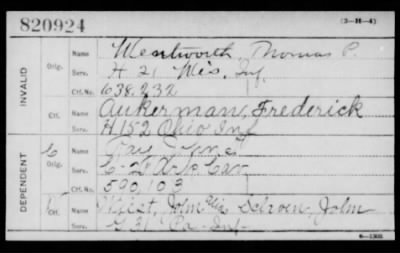 820924
(3—H—4)
INVALID
Orig.
Name Wentworth, Thomas P.
Serv. H 21 Wis. Inf.
Ctf. No. 638,232
Ctf.
Name Aukerman, Frederick
Serv. H 152 Ohio Inf
DEPENDENT
Orig.
Name
Serv.
Ctf. No. 590,103
Ctf.
Name John Schroen, John
Serv. G 31 Pa. Inf.